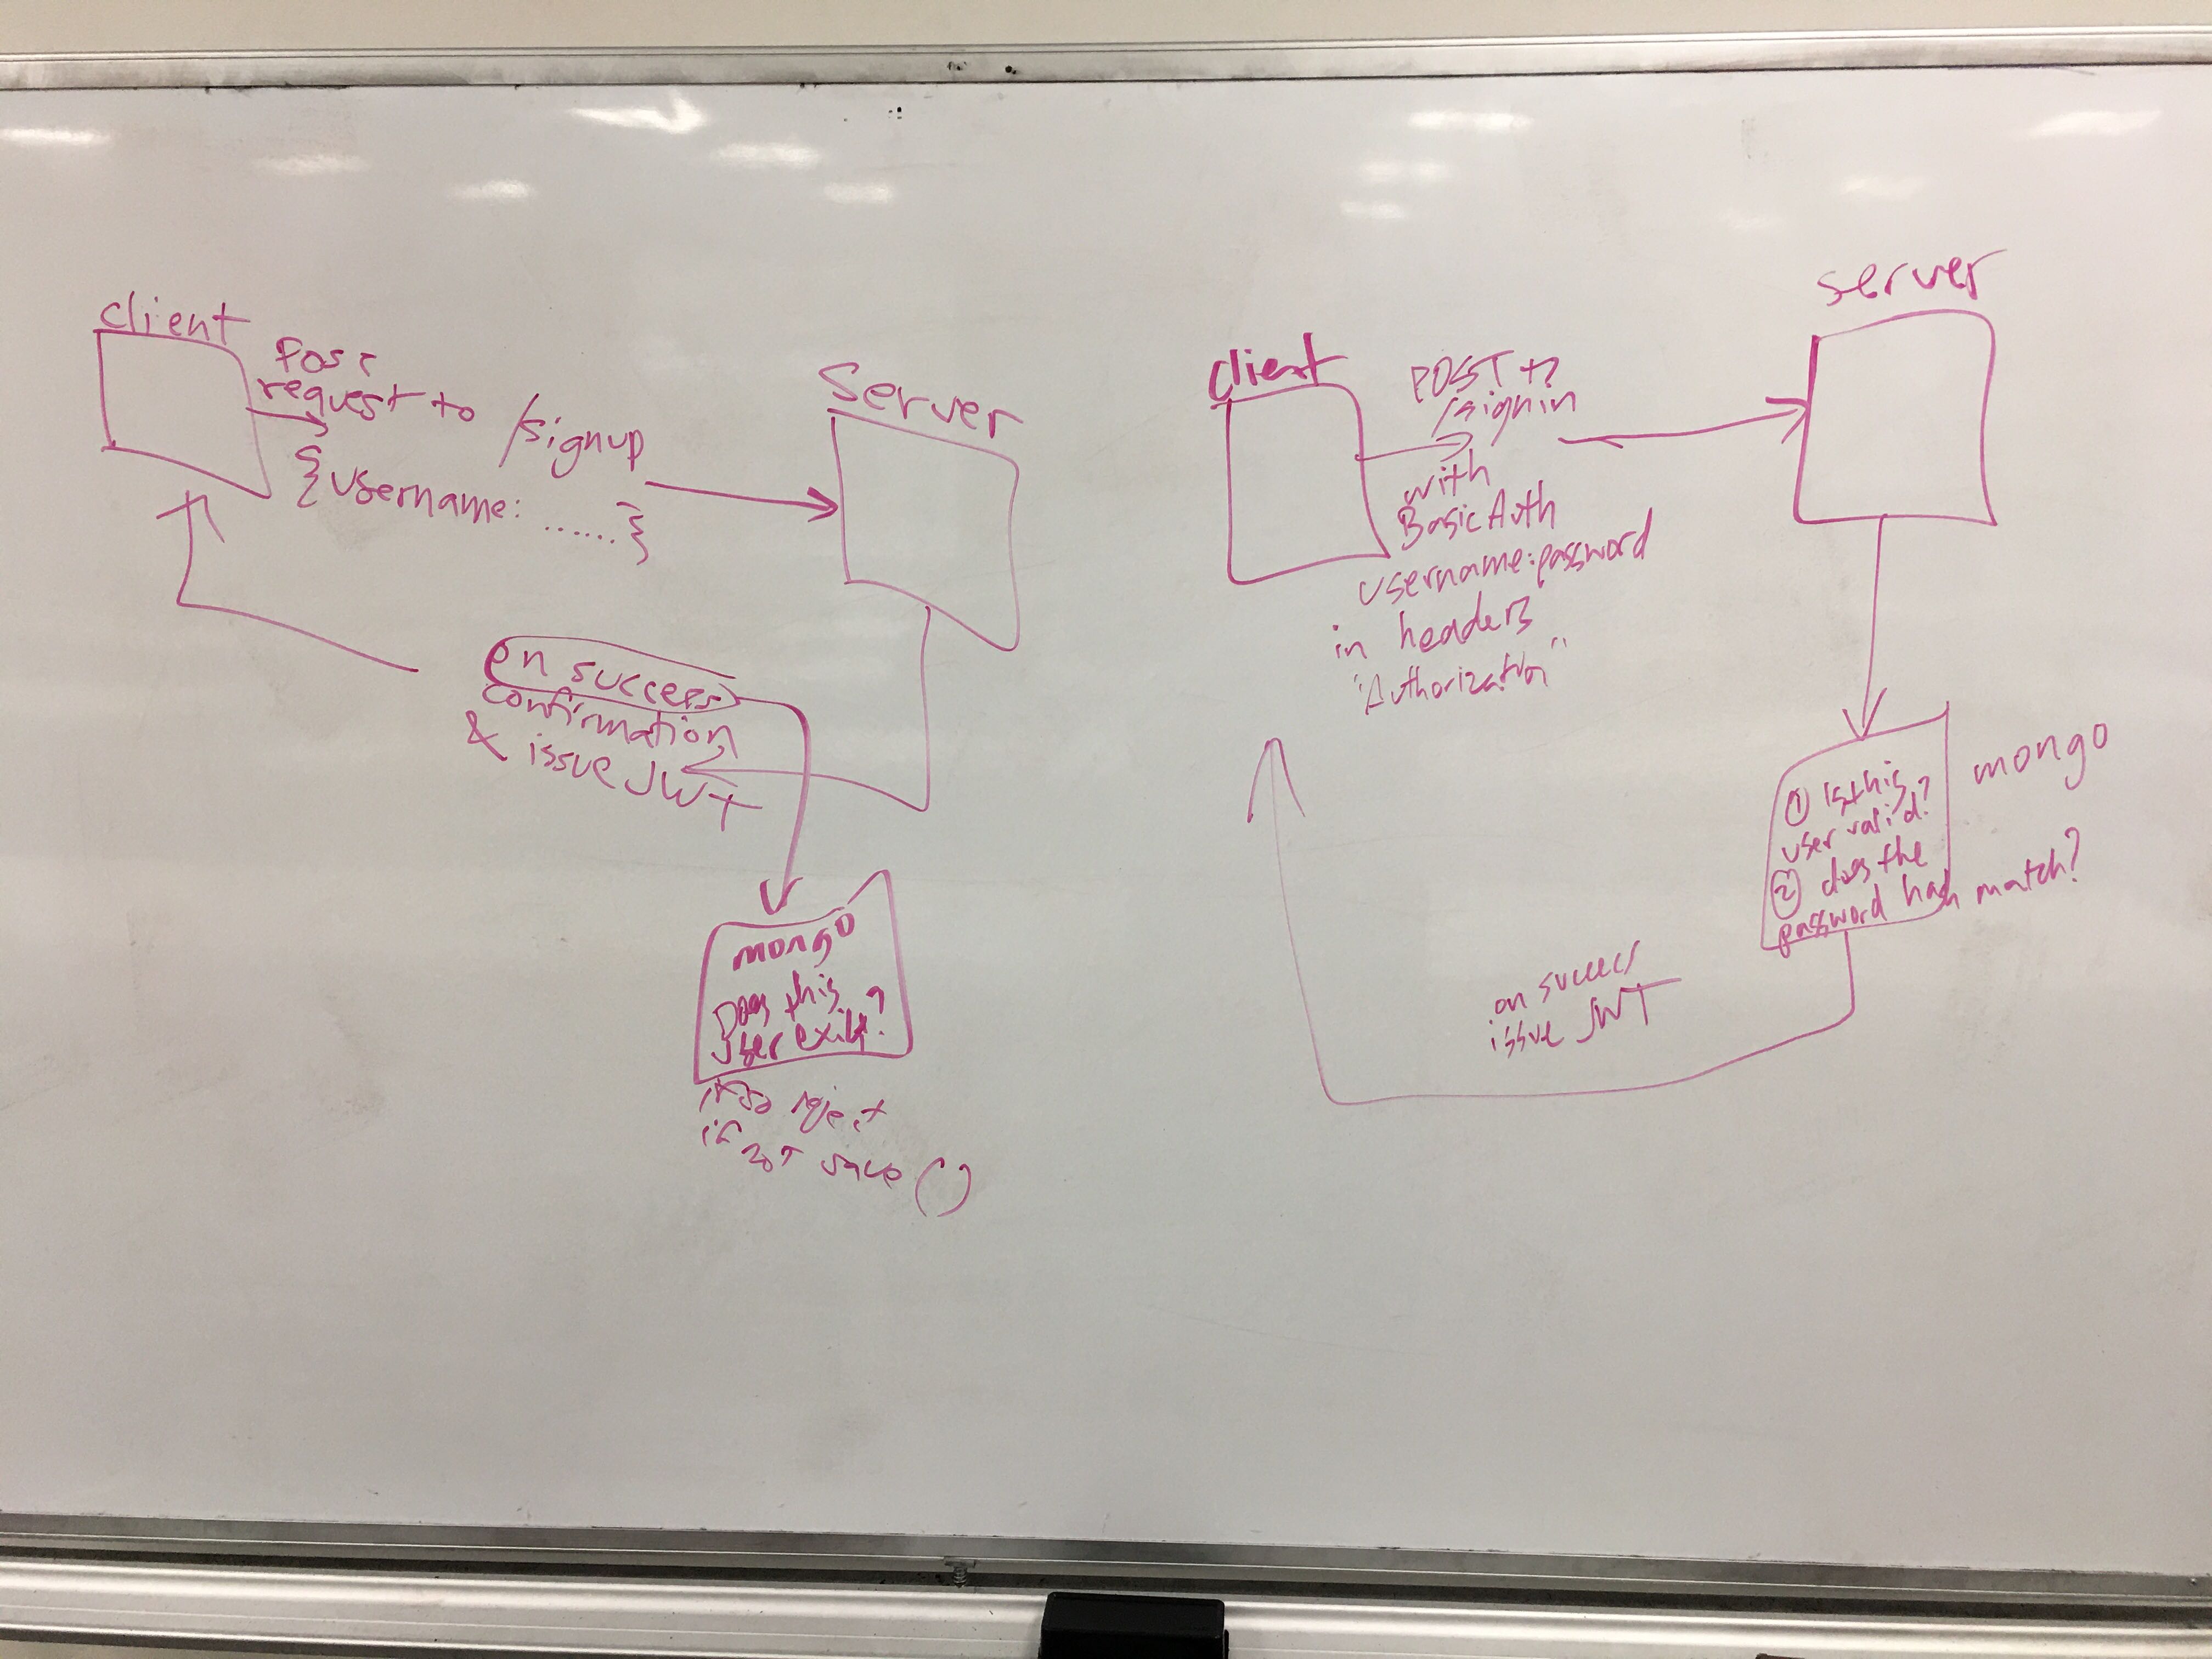 client
Post
request to /signup
{username: ......}
Server
on success
confirmation
& issue JWT
mongo
Does this
User exist?
if so reject
if not save()
client
POST to
/signin
with
Basic Auth
username:password
in headers
"Authorization"
server
mongo
① Is this
user valid?
② does the
password hash match?
on success
issue JWT